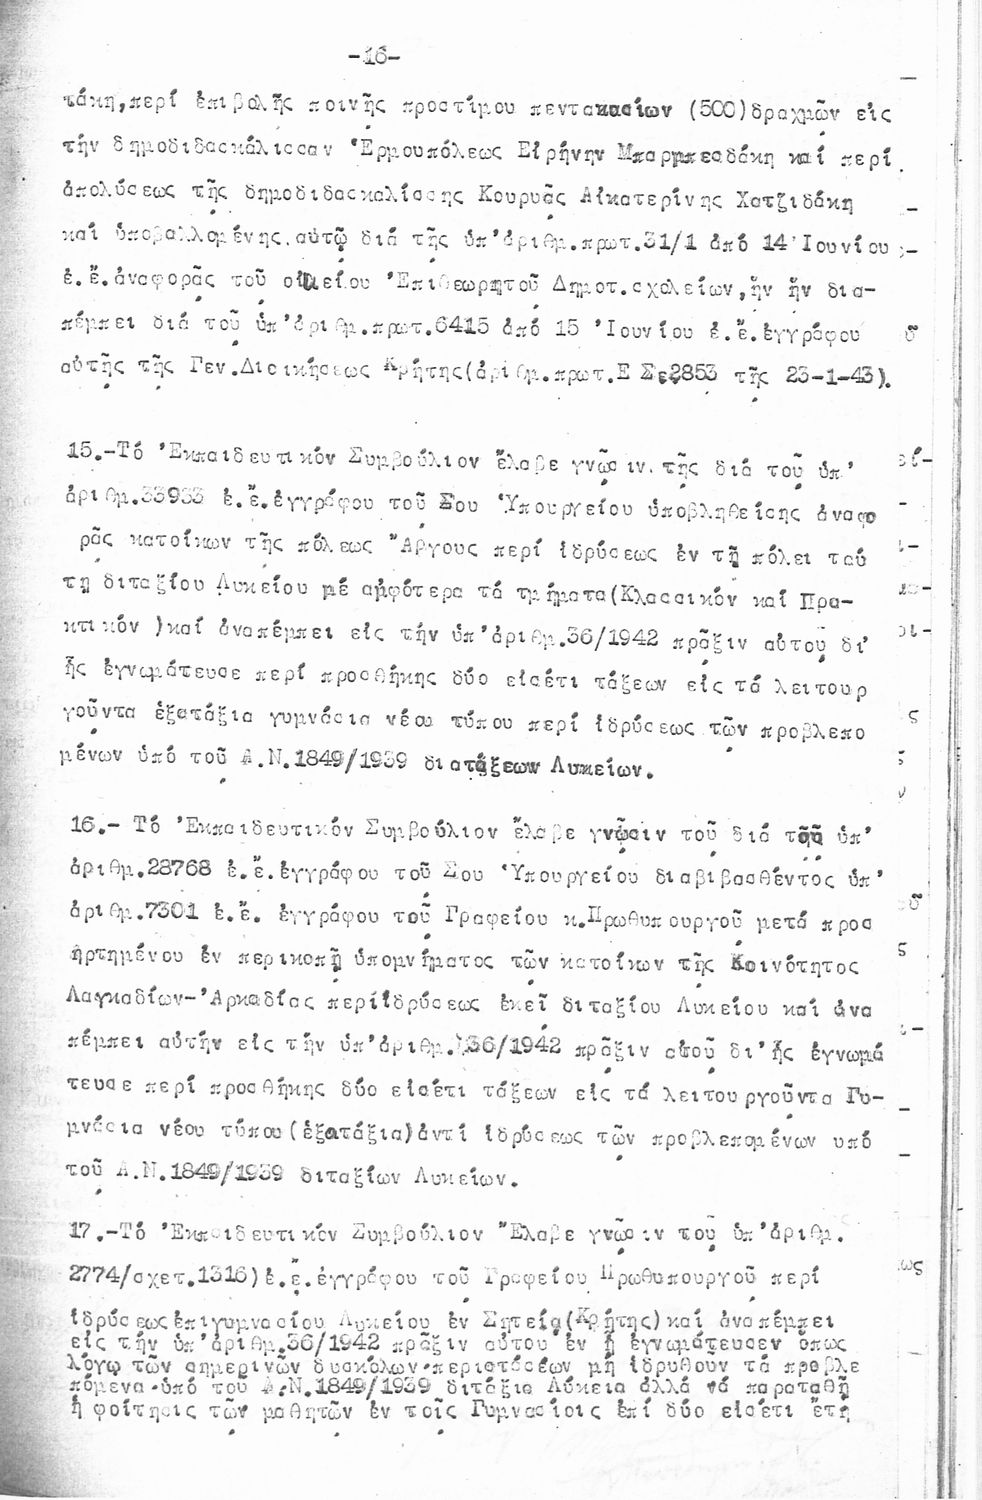 -16-
τάκη,περί ἐπιβολῆς ποινῆς προστίμου πεντακοσίων (500)δραχμῶν εἰς
τήν δημοδιδασκάλισσαν Ἑρμουπόλεως Εἰρήνην Μπαρμπεσδάκη καί περί
ἀπολύσεως τῆς δημοδιδασκαλίσσης Κουρυᾶς Αἰκατερίνης Χατζιδάκη
καί ὑποβαλλομένης αὐτῷ διά τῆς ὑπ'ἀριθμ.πρωτ.31/1 ἀπό 14 Ἰουνίου
ἐ.ἔ.ἀναφορᾶς τοῦ οἰκείου Ἐπιθεωρητοῦ Δημοτ.σχολείων,ἥν ἥν δια-
πέμπει διά τοῦ ὑπ'ἀριθμ.πρωτ.6415 ἀπό 15 Ἰουνίου ἐ.ἔ.ἐγγράφου
αὐτῆς τῆς Γεν.Διοικήσεως Κρήτης(ἀριθμ.πρωτ.Ε Σε2853 τῆς 23-1-43).
15.-Τό Ἐκπαιδευτικόν Συμβούλιον ἔλαβε γνῶσιν τῆς διά τοῦ ὑπ'
ἀριθμ.33933 ἐ.ἔ.ἐγγράφου τοῦ Σου Ὑπουργείου ὑποβληθείσης ἀναφο
ρᾶς κατοίκων τῆς πόλεως Ἄργους περί ἱδρύσεως ἐν τῇ πόλει ταύ
τῃ διταξίου Λυκείου μέ ἀμφότερα τά τμήματα(Κλασσικόν καί Πρα-
κτικόν )καί ἀναπέμπει εἰς τήν ὑπ'ἀριθμ.36/1942 πρᾶξιν αὐτοῦ δι'
ἧς ἐγνωμάτευσε περί προσθήκης δύο εἰσέτι τάξεων εἰς τά λειτουρ
γοῦντα ἑξατάξια γυμνάσια νέου τύπου περί ἱδρύσεως τῶν προβλεπο
μένων ὑπό τοῦ Α.Ν.1849/1939 διατάξεων Λυκείων.
16.- Τό Ἐκπαιδευτικόν Συμβούλιον ἔλαβε γνῶσιν τοῦ διά τοῦ ὑπ'
ἀριθμ.28768 ἐ.ἔ.ἐγγράφου τοῦ Σου Ὑπουργείου διαβιβασθέντος ὑπ'
ἀριθμ.7301 ἐ.ἔ. ἐγγράφου τοῦ Γραφείου κ.Πρωθυπουργοῦ μετά προσ
ηρτημένου ἐν περικοπῇ ὑπομνήματος τῶν κατοίκων τῆς Κοινότητος
Λαγκαδίων-Ἀρκαδίας περίἱδρύσεως ἐκεῖ διταξίου Λυκείου καί ἀνα
πέμπει αὐτήν εἰς τήν ὑπ'ἀριθμ.36/1942 πρᾶξιν αὐτοῦ δι'ἧς ἐγνωμά
τευσε περί προσθήκης δύο εἰσέτι τάξεων εἰς τά λειτουργοῦντα Γυ-
μνάσια νέου τύπου(ἑξατάξια)ἀντί ἱδρύσεως τῶν προβλεπομένων ὑπό
τοῦ Α.Ν.1849/1939 διταξίων Λυκείων.
17.-Τό Ἐκπαιδευτικόν Συμβούλιον Ἔλαβε γνῶσιν τοῦ ὑπ'ἀριθμ.
2774/σχετ.1316)ἐ.ἔ.ἐγγράφου τοῦ Γραφείου Πρωθυπουργοῦ περί
ἱδρύσεωςἐπιγυμνασίου Λυκείου ἐν Σητείᾳ(Κρήτης)καί ἀναπέμπει
εἰς τήν ὑπ'ἀριθμ.36/1942 πρᾶξιν αὐτοῦ ἐν ᾗ ἐγνωμάτευσεν ὅπως
λόγῳ τῶν σημερινῶν δυσκόλων περιστάσεων μή ἱδρυθοῦν τά προβλε
πόμενα ὑπό τοῦ Α.Ν.1849/1939 διτάξια Λύκεια ἀλλά νά παραταθῇ
ἡ φοίτησις τῶν μαθητῶν ἐν τοῖς Γυμνασίοις ἐπί δύο εἰσέτι ἔτη